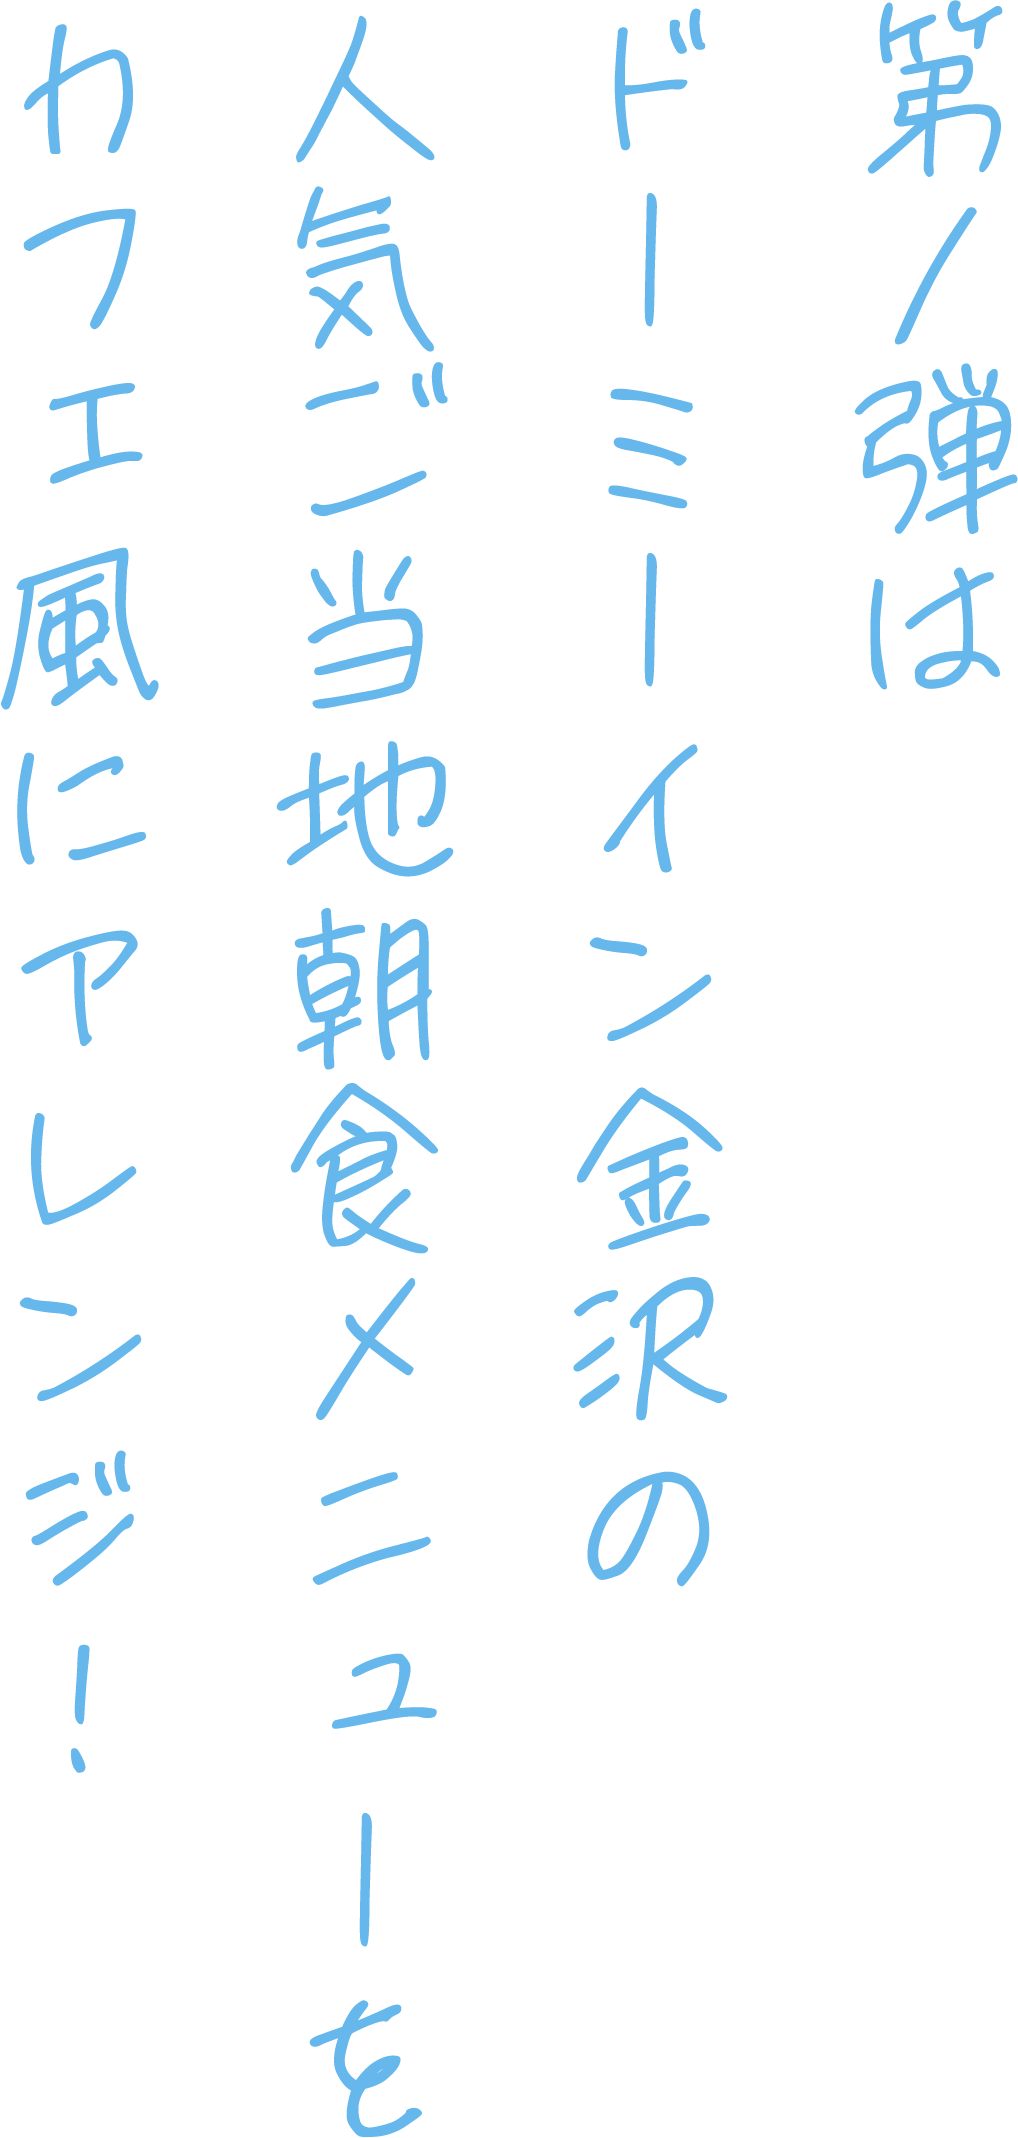 第1弾は
ドーミーイン金沢の
人気ご当地朝食メニューを
カフェ風にアレンジ!